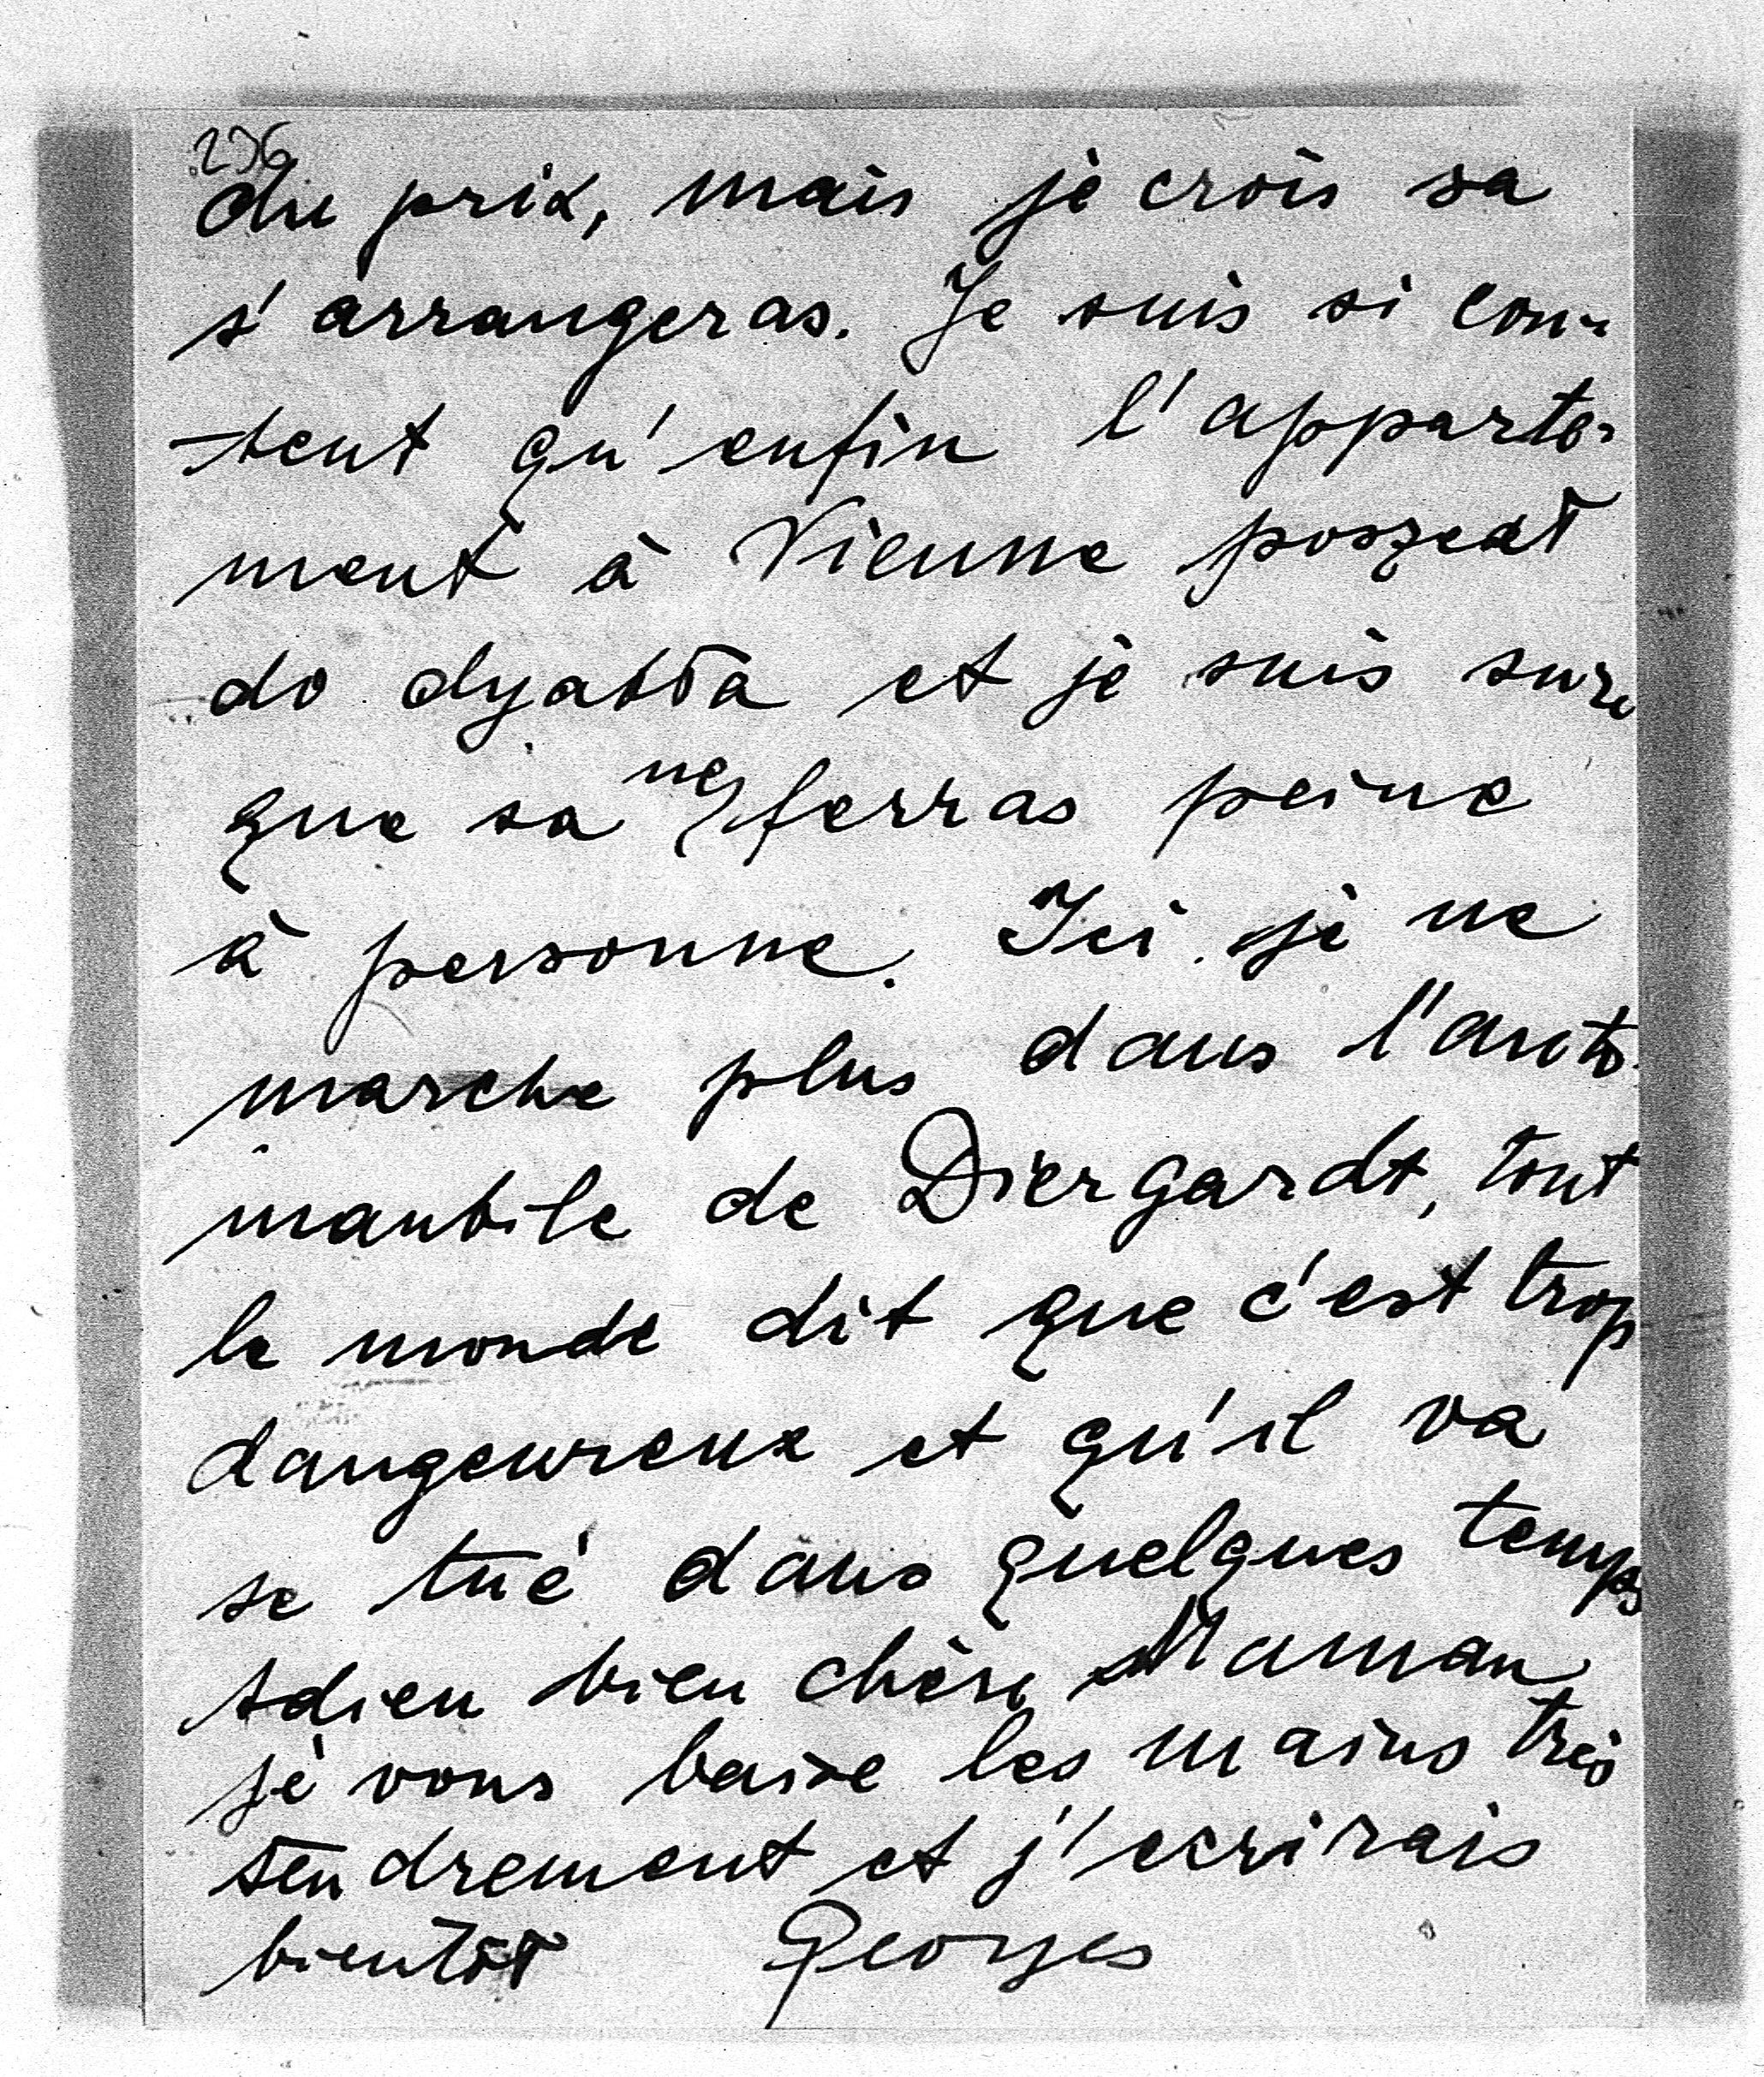 236
du prix, mais je crois sa
s'arrangeras. Je suis si con-
-tent qu'enfin l'apparte-
ment à Vienne poszedt
do dyabła et je suis sure
que sa ne ferras peine
à personne. Ici je ne
marche plus dans l'auto-
maubile de Diergardt, tout
le monde dit que c'est trop
dangeureux et qu'il va
se tué dans quelques temps
Adieu bien chère Maman
je vous baise les mains très
tendrement et j'ecrirais
bientôt Georges